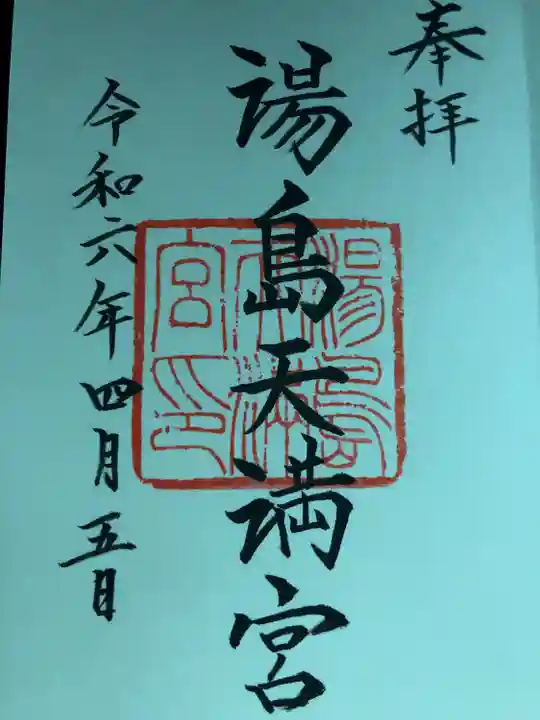 奉拝
湯島天満宮
湯島天満宮印
令和六年四月五日